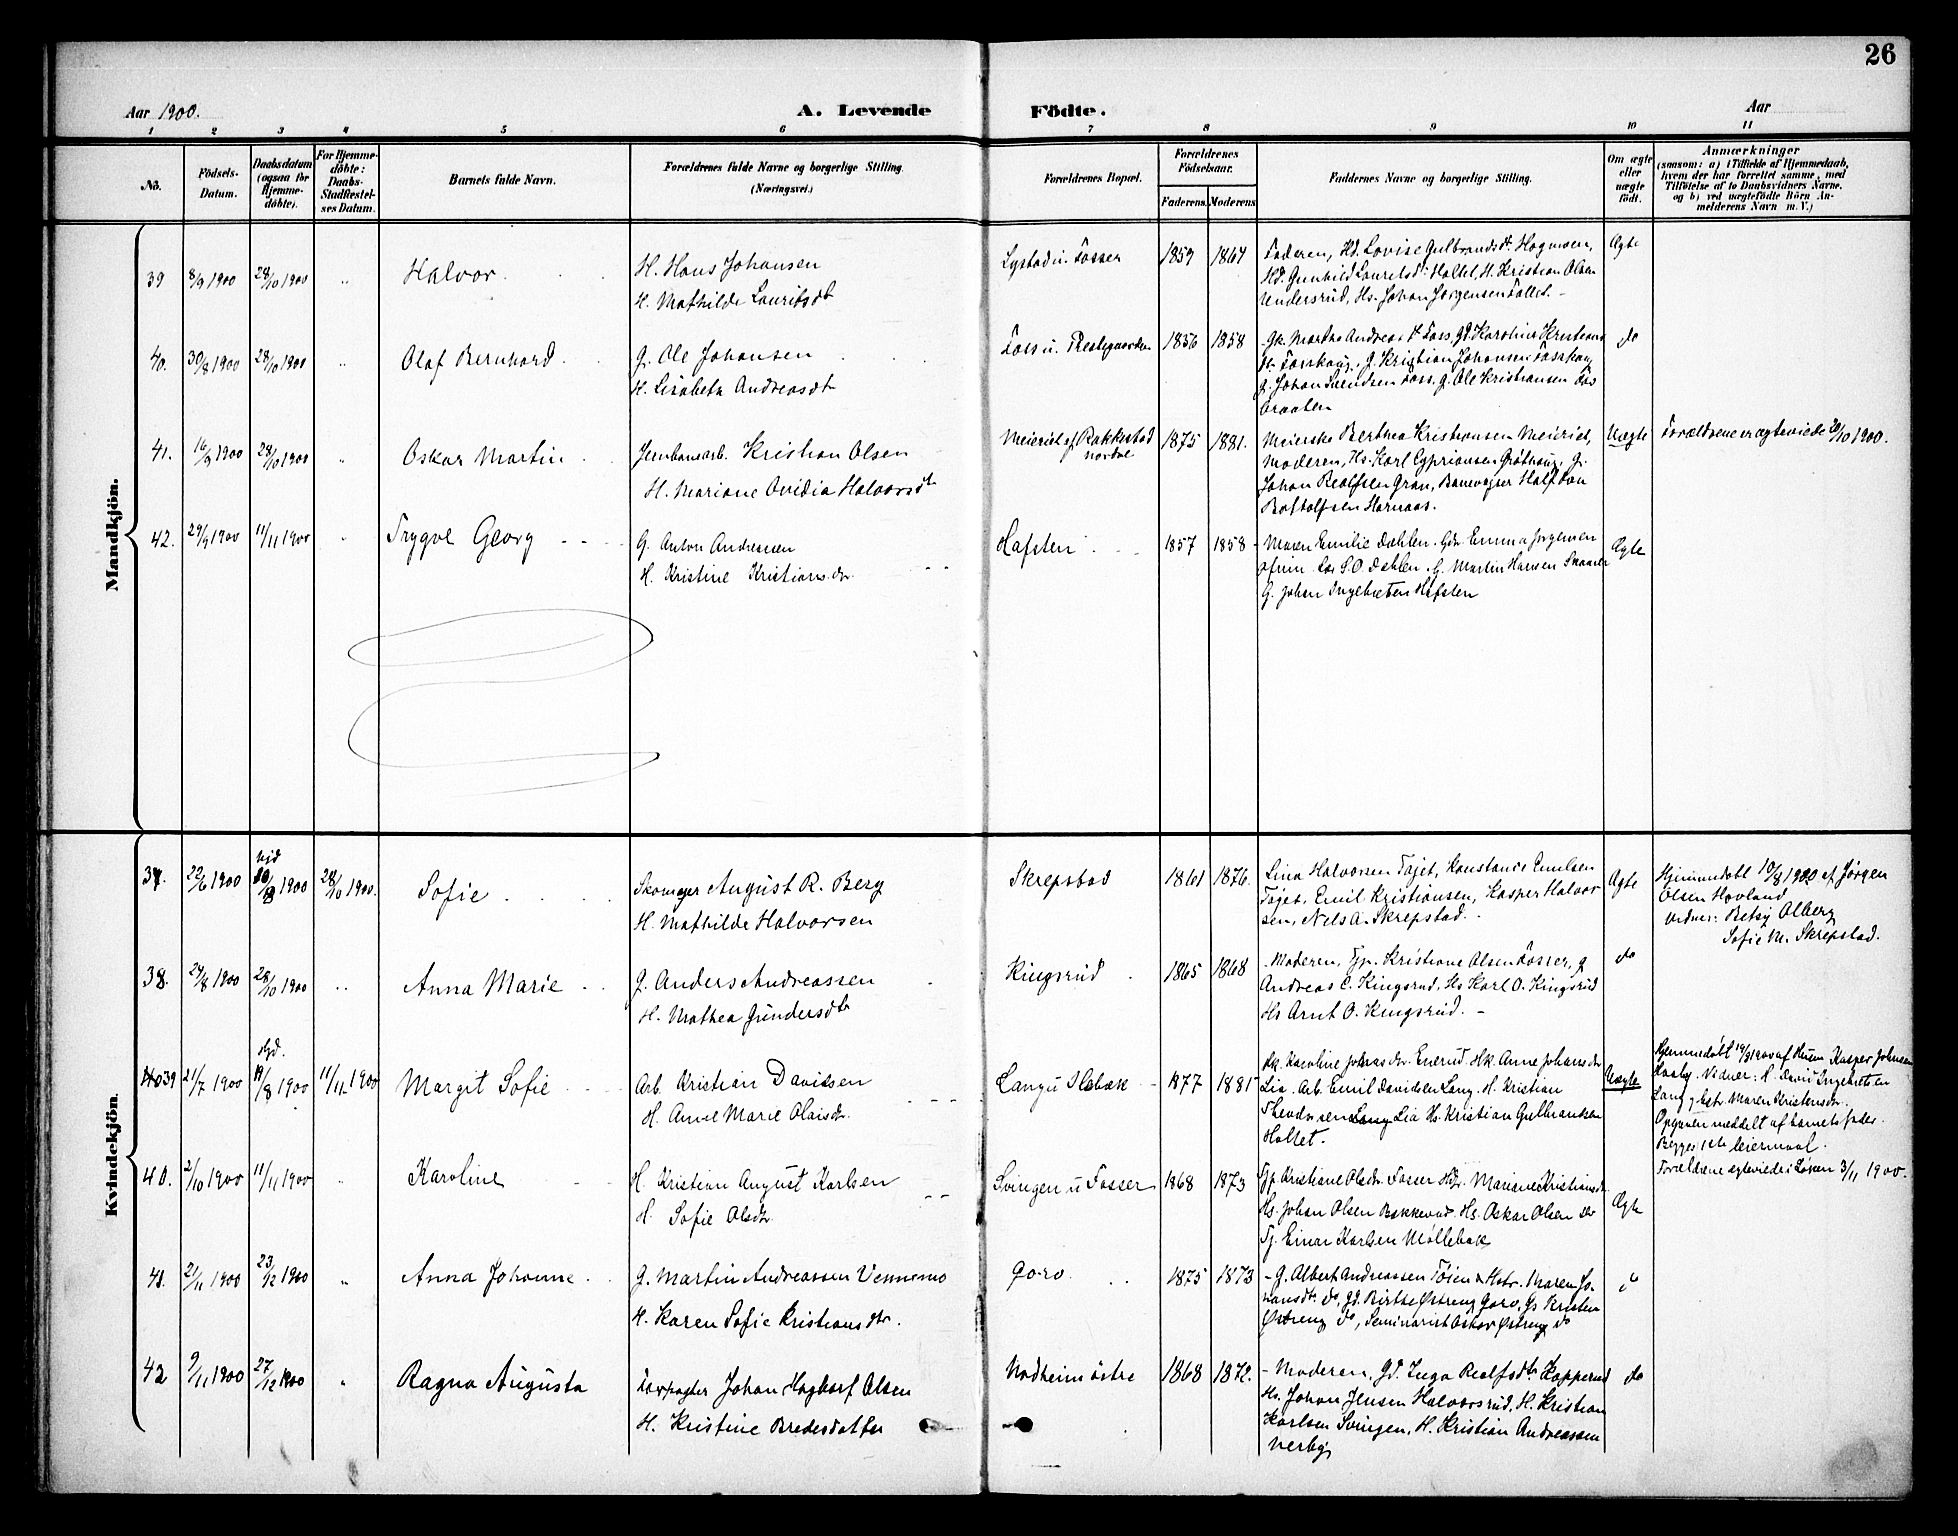 26
Aar 1900.
A. Levende Födte.
Aar
1 2 3 4 5 6 7 8 9 10 11
No.
Födsels-Datum.
Daabsdatum (ogsaa for Hjemme-döbte).
For Hjemme-döbte: Daabs-Stadfæstel-ses Datum.
Barnets fulde Navn.
Forældrenes fulde Navne og borgerlige Stilling (Næringsvei.)
Forældrenes Bopæl.
Forældrenes Födselsaar.
Faderens. Moderens
Faddernes Navne og borgerlige Stilling.
Om ægte eller uægte födt.
Anmærkninger
(saasom: a) i Tilfælde af Hjemmedaab, hvem der har forrettet samme, med Tilföielse af to Daabsvidners Navne, og b) ved uægtefödte Börn An-melderens Navn m. V.)
Mandkjön.
39 8/9 1900 28/10 1900 " Halvor
H. Hans Johansen
H. Mathilde Lauritsdt
Lystad u. Fosser 1859 1867
Faderen, Hd. Lovise Gulbrandsdt. Hagnesen,
Hd. Gunhild Lauritsdt. Hallet, H. Kristian Olsen
Undersrud, Hs. Johan Jørgensen Tollet. –
Ægte
40. 30/8 1900 28/10 1900 " Olaf Bernhard
G. Ole Johansen
H. Lisabeth Andreasdt
Foss u. Prestegaarden 1856 1858
Gk. Marthe Andreasdt Foss, Gd. Karoline Kristians
dt. Fosshaug, G. Kristian Johansen Fosshaug
G. Johan Svendsen Foss, G. Ole Kristiansen Fos
Braaten
do
41. 16/9 1900 28/10 1900 " Oskar Martin
Jernbanearb. Kristian Olsen
H. Mariane Ovidia Halvorsdt
Meieriet of Rakkestad
nordre
1875 1881.
Meierske Berthea Kristiansen Meieriet,
Moderen, Hs. Karl Cypriansen Grøthaug, G.
Johan Reolfsen Gran, Banevogter Halfdan
Bottolfsen Harnaas.
Uægte
Forældrene er ægteviede 20/10 1900.
42. 29/9 1900 11/11 1900 " Trygve Georg
G. Anton Andresen
H. Kristine Kristiansdtr
Hafsten 1857 1858
Maren Emilie Dahlen. Gdr Emma Jørgensen
S. O. Dahlen. G. Martin Hansen
G. Johan Ingebretsen Hafsten
Ægte
Kvindekjön.
37. 22/6 1900 hjd 10/8 1900 28/10 1900. Sofie
Skomager August R. Berg
H. Mathilde Halvorsen
Skrepstad 1861 1876.
Lina Halvorsen Tøjet, Konstance Emilsen
Tøjet, Emil Kristiansen, Kasper Halvor
sen, Nels A. Skrepstad.
Ægte
Hjemmedøbt 10/8 1900 af Jørgen
Olsen Hovland
Vidner: Betsy Olberg
Sofie M. Skrepstad.
38. 24/8 1900 28/10 1900 " Anna Marie
G. Anders Andreassen
H. Mathea Gundersdtr
Kingsrud 1865 1868
Moderen, Tjp. Kristiane Olsen Fosser, G
Andreas C. Kingsrud, Hs Karl O. Kingsrud
Hs Arnt O. Kingsrud. –
do
39 21/7 1900 Hjd. 19/8 1900 11/11 1900 Margit Sofie
Arb. Kristian Davidsen
H. Anne Marie Olaisdtr
Lang u Slebæk 1877 1881
Hk. Karoline Johansdtr. Enerud. Hk. Anne Johansdtr
Lia. Arb. Emil Davidsen Lang. H. Kristian
Lang Lia Hs. Kristian Gulbransen
Hallet.
Uægte
Hjemmedøbt 19/8 1900 af Husm Kasper Johnsen
Vidner: H. David Ingebretsen
Lang og hstr. Maren Kristensdtr.
Opgaven meddelt af barnets fader.
Begges 1ste leiermaal.
Forældrene egteviede i Løken 3/11 1900.
40. 2/10 1900 11/11 1900 " Karoline
H. Kristian August Karlsen
H. Sofie Olsdtr
Svingen u Fosser 1868 1873
Tjp Kristiane Olsdtr Fosser Hk. Mariane Kristiansdtr
Hs. Johan Olsen Bakkerud. Hs. Oskar Olsen do
Tj. Einar Karlsen Møllebæk
Ægte
41. 21/11 1900 23/12 1900 " Anna Johanne
G. Martin Andreassen Vennemo
H. Karen Sofie Kristiansdtr.
Goro 1875 1873
G. Albert Andreassen Tøien & Hstr. Maren Jo-
hansdt. do, Gd. Birthe Østreng Goro, Gs Kristen
Østreng do, Seminarist Oskar Østreng do
do
42 9/11 1900 27/12 1900 " Ragna Augusta
Forpagter Johan Hagbart Olsen
H. Kristine Bredesdatter
Nadheim östre 1868 1872.
Moderen, Gd. Inga Reolfsdtr Kopperud
Hs. Johan Jensen Halvorsrud, H. Kristian
Karlsen Svingen, H. Kristian Andreassen
Nerby
do